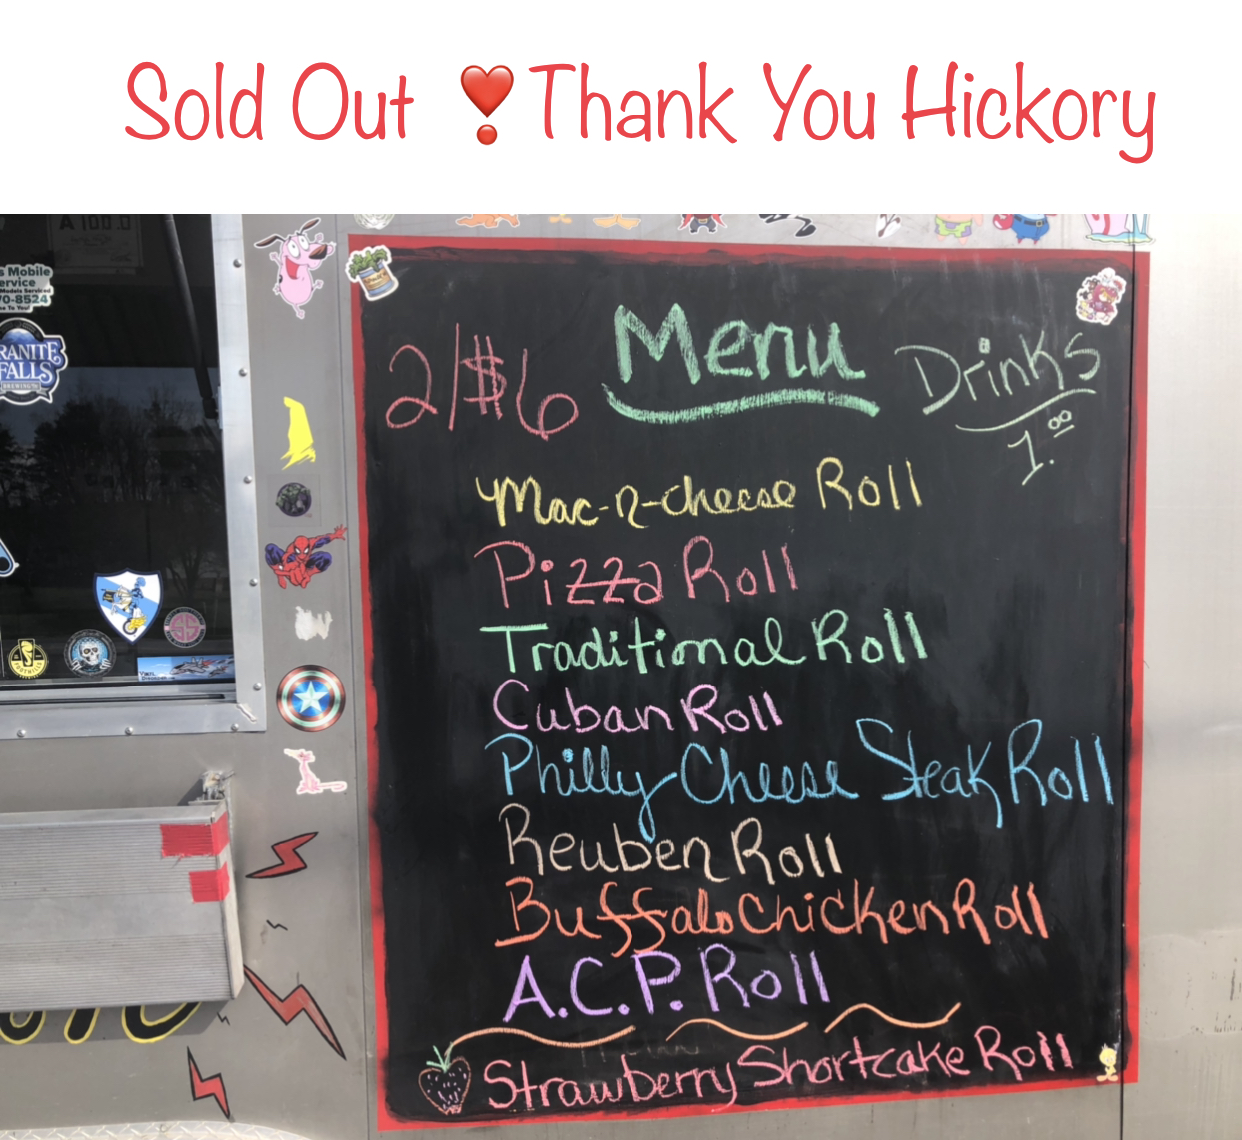 Sold Out ❣️Thank You Hickory
A 100.0
s Mobile
ervice
Models Serviced
70-8524
e To You!
RANITE
FALLS
BREWING
Menu
2/$6
Drinks
1.00
Mac-n-cheese Roll
Pizza Roll
Traditional Roll
Cuban Roll
Philly Cheese Steak Roll
Reuben Roll
Buffalo Chicken Roll
A.C.P. Roll
Strawberry Shortcake Roll